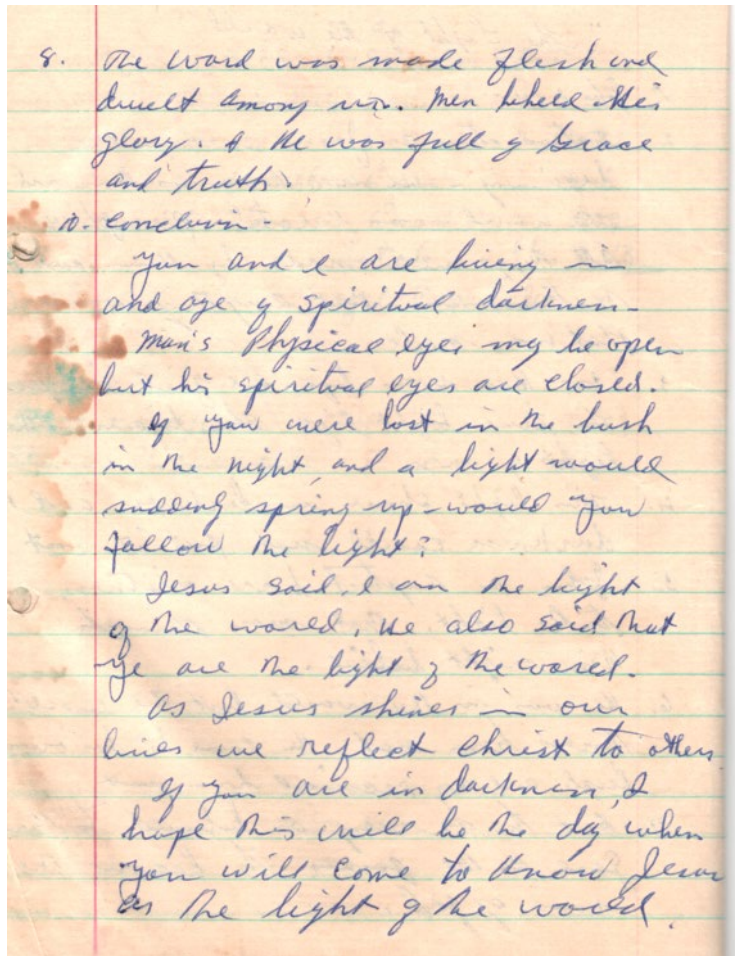 8. The word was made flesh and
dwelt among us. Men beheld His
glory. & He was full of Grace
and truth.
10. Conclusion -
You and I are living in
and age of spiritual darkness -
Man's Physical eyes may be open
but his spiritual eyes are closed.
If you were lost in the bush
in the night, and a light would
suddenly spring up - would you
follow the light?
Jesus said, I am the light
of the world, He also said that
ye are the light of the world.
As Jesus shines in our
lives we reflect Christ to others
If you are in darkness, I
hope this will be the day when
you will come to know Jesus
as the light of the world.